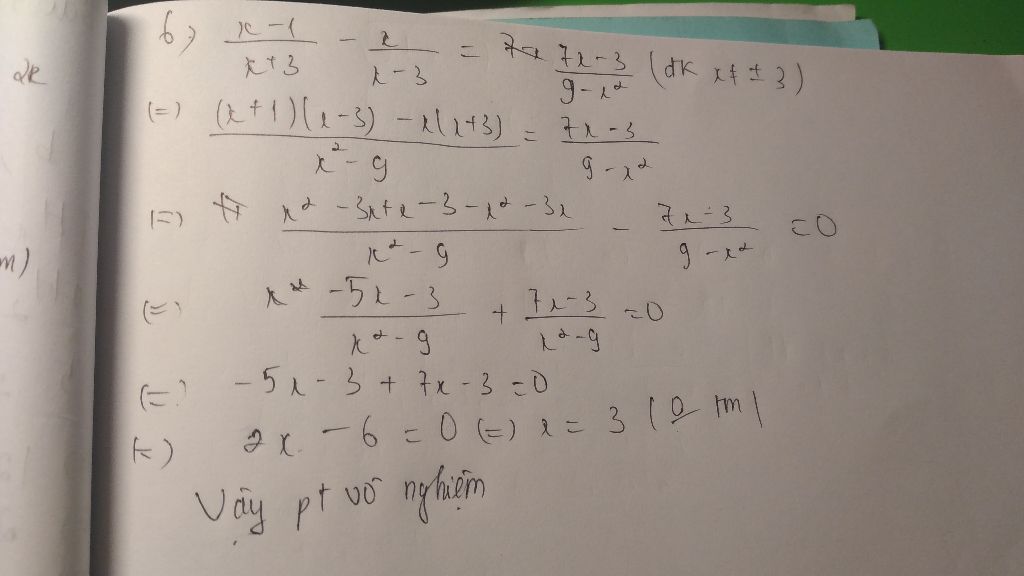 2x
b) (x-1)/(x+3) - x/(x-3) = (7x-3)/(9-x²) (đk x≠±3)
(=) ((x+1)(x-3) - x(x+3))/(x²-9) = (7x-3)/(9-x²)
(=) (x²-3x+x-3-x²-3x)/(x²-9) - (7x-3)/(9-x²) = 0
m)
(=) (-5x-3)/(x²-9) + (7x-3)/(x²-9) = 0
(=) -5x-3+7x-3=0
(=) 2x-6=0 (=) x=3 (0 tm)
Vậy pt vô nghiệm